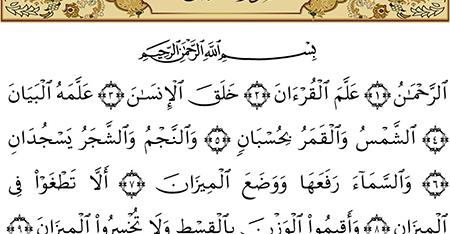 بِسْمِ اللَّهِ الرَّحْمَٰنِ الرَّحِيمِ
الرَّحْمَٰنُ ﴿١﴾ عَلَّمَ الْقُرْءَانَ ﴿٢﴾ خَلَقَ الْإِنسَٰنَ ﴿٣﴾ عَلَّمَهُ الْبَيَانَ
﴿٤﴾ الشَّمْسُ وَالْقَمَرُ بِحُسْبَانٍ ﴿٥﴾ وَالنَّجْمُ وَالشَّجَرُ يَسْجُدَانِ
﴿٦﴾ وَالسَّمَاءَ رَفَعَهَا وَوَضَعَ الْمِيزَانَ ﴿٧﴾ أَلَّا تَطْغَوْا فِي
الْمِيزَانِ ﴿٨﴾ وَأَقِيمُوا الْوَزْنَ بِالْقِسْطِ وَلَا تُخْسِرُوا الْمِيزَانَ ﴿٩﴾